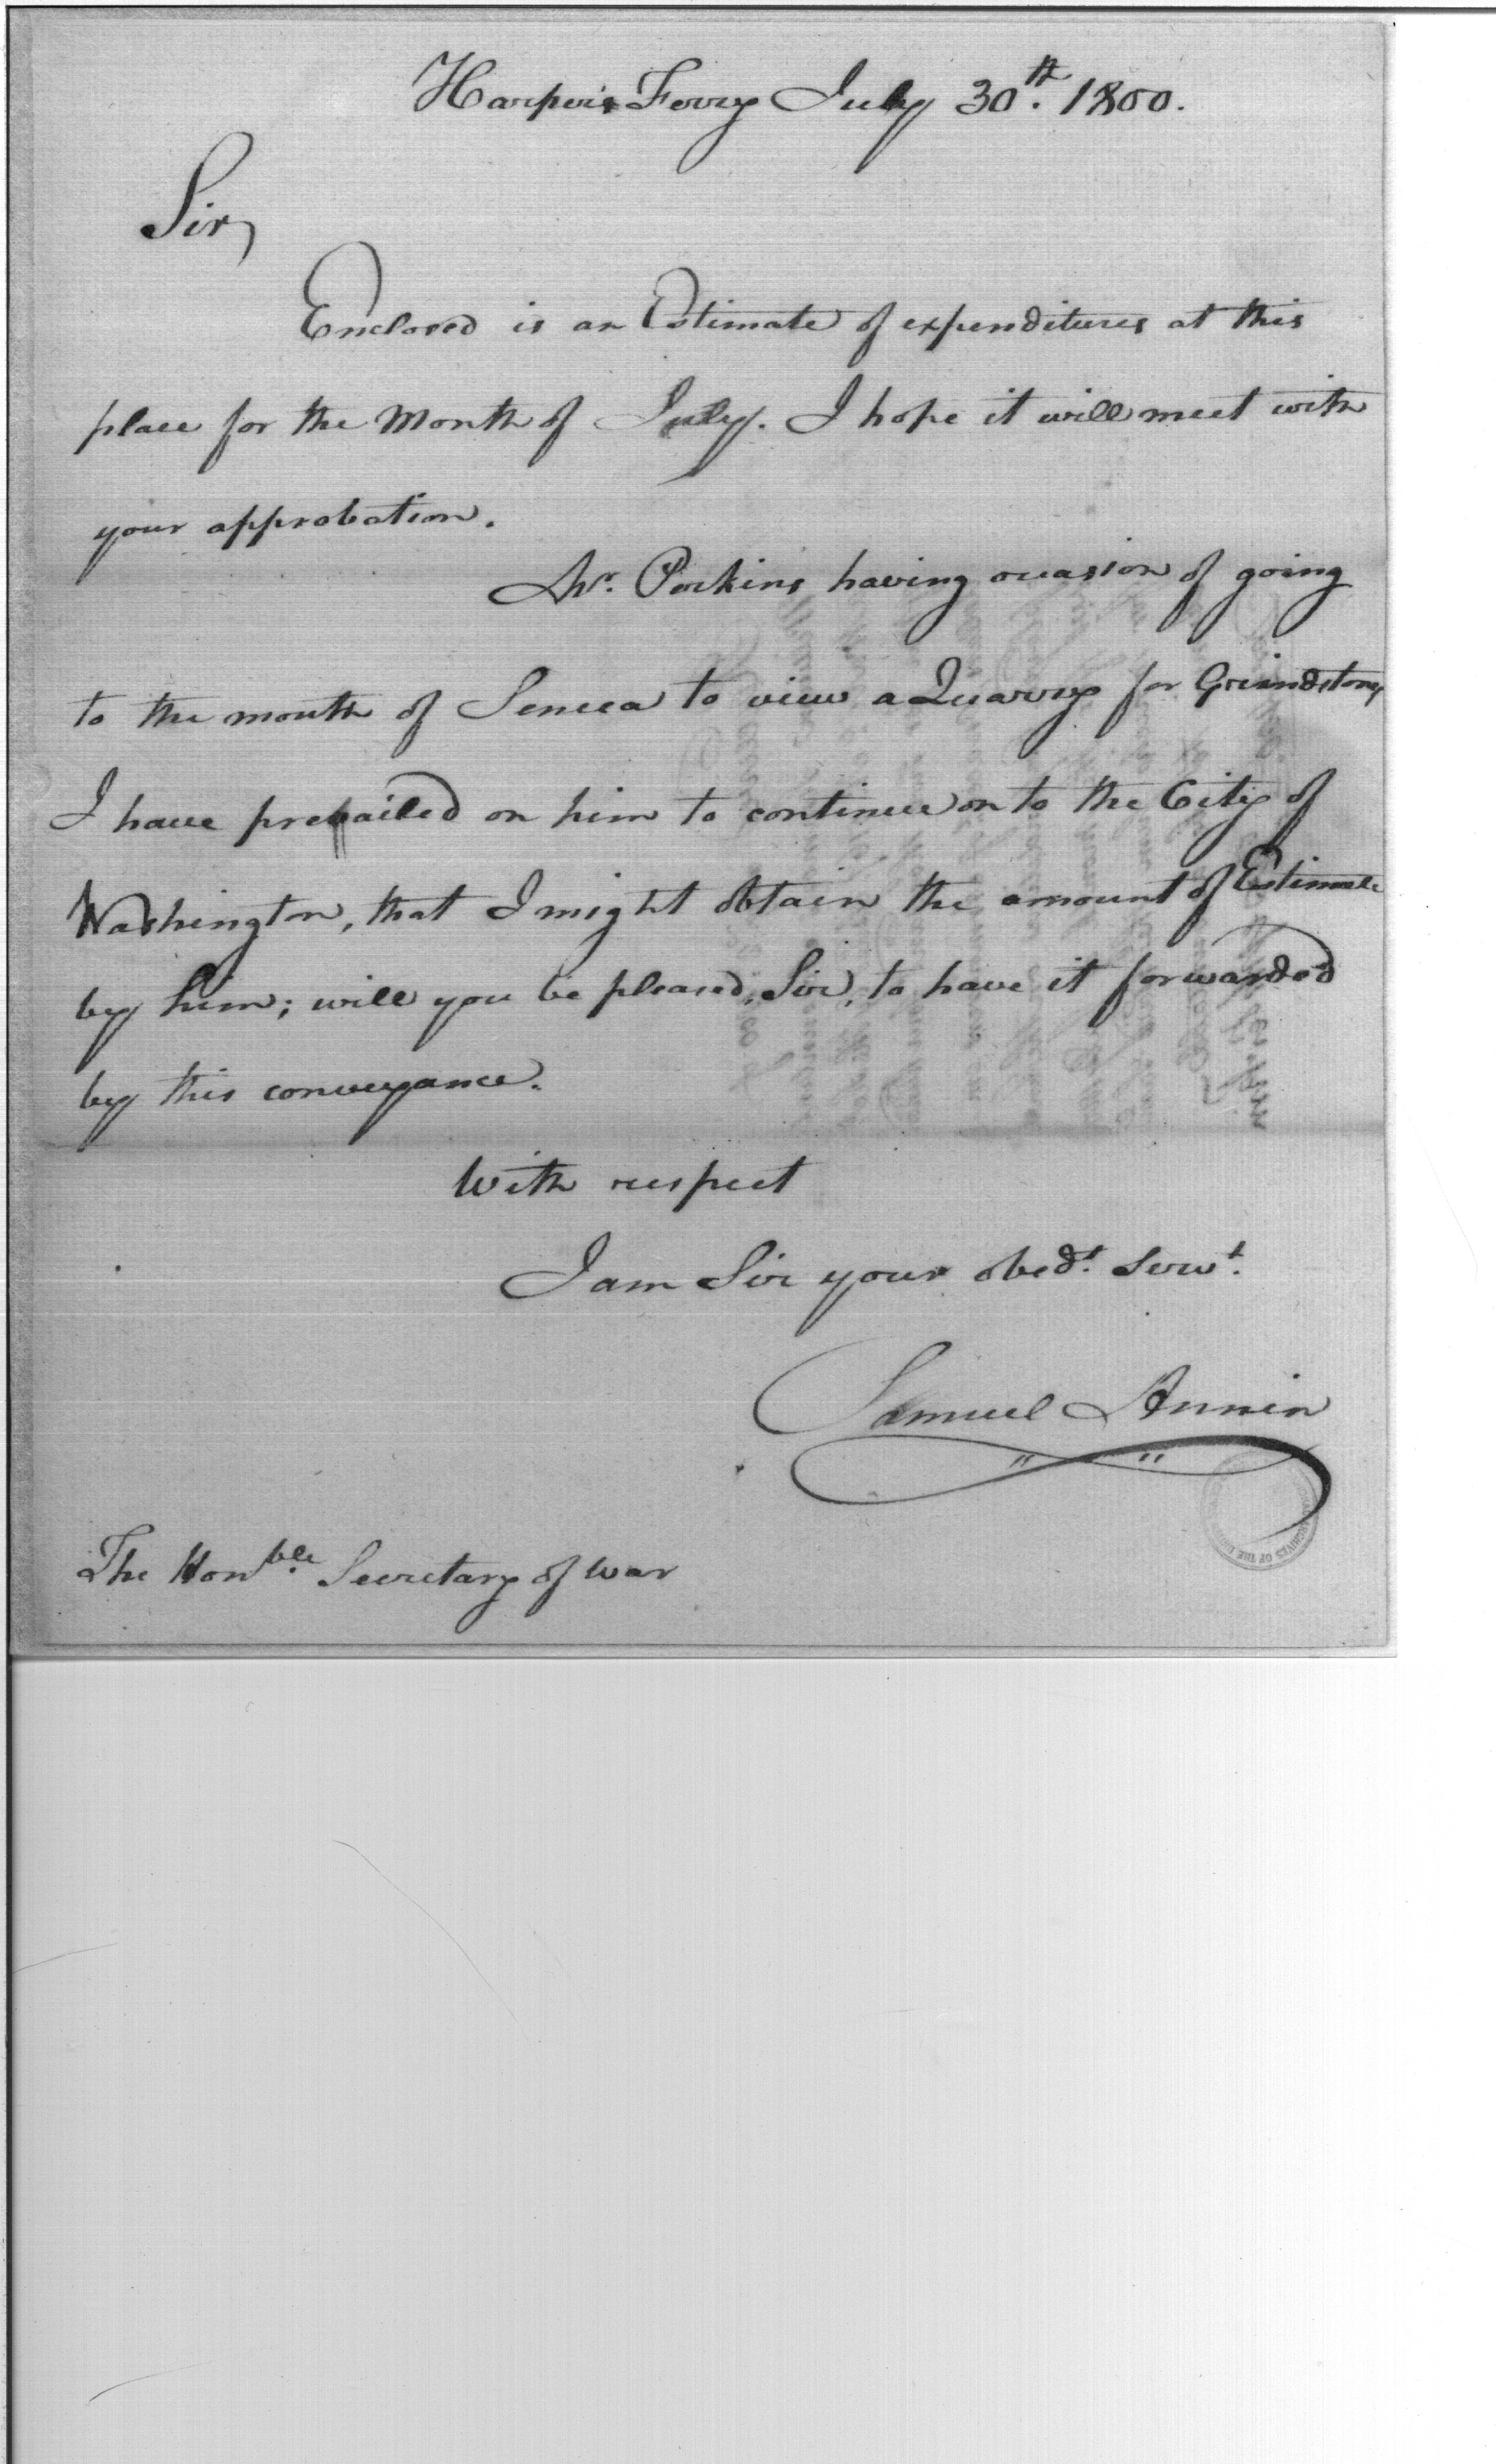 Harper's Ferry July 30th. 1800.
Sir,
Enclosed is an Estimate of expenditures at this
place for the Month of July. I hope it will meet with
your approbation.
Mr. Perkins having occasion of going
to the mouth of Seneca to view a Quarry for Grindstones
I have prevailed on him to continue on to the City of
Washington, that I might obtain the amount of Estimate
by him; will you be pleased, Sir, to have it forwarded
by this conveyance.
With respect
I am Sir your obedt. Servt.
Samuel Annin
The Honble. Secretary of War
ARCHIVES OF THE